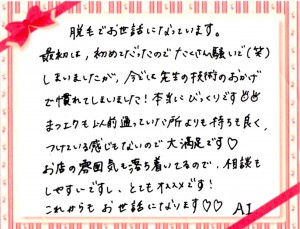 脱毛でお世話になっています。
最初は、初めてだったのでたくさん騒いで(笑)
しまいましたが、今では先生の技術のおかげ
で慣れてしまいました！本当にびっくりです
まつエクも以前通っていた所よりも持ちも良く、
つけている感じもないので大満足です♡
お店の雰囲気も落ち着いてるので、相談も
しやすいですし、とてもオススメです！
これからもお世話になります♡♡ A I